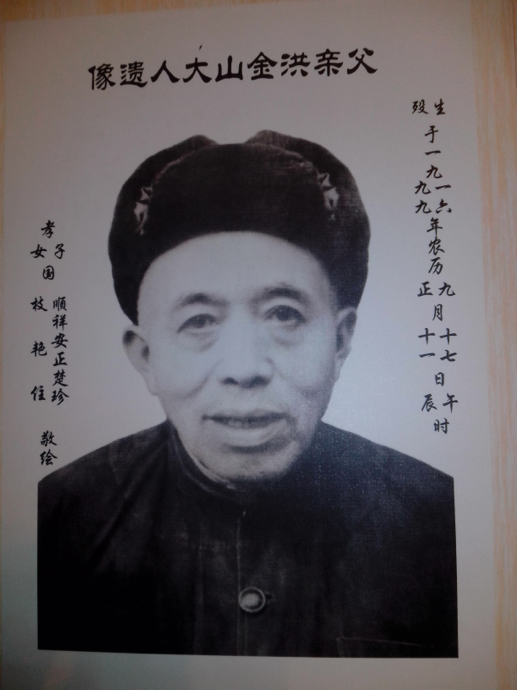 父亲洪金山大人遗像
生于一九一六年农历九月十七日午时
殁于一九九九年农历正月十一日辰时
孝子国顺祥安正楚珍
女枝艳住
敬绘